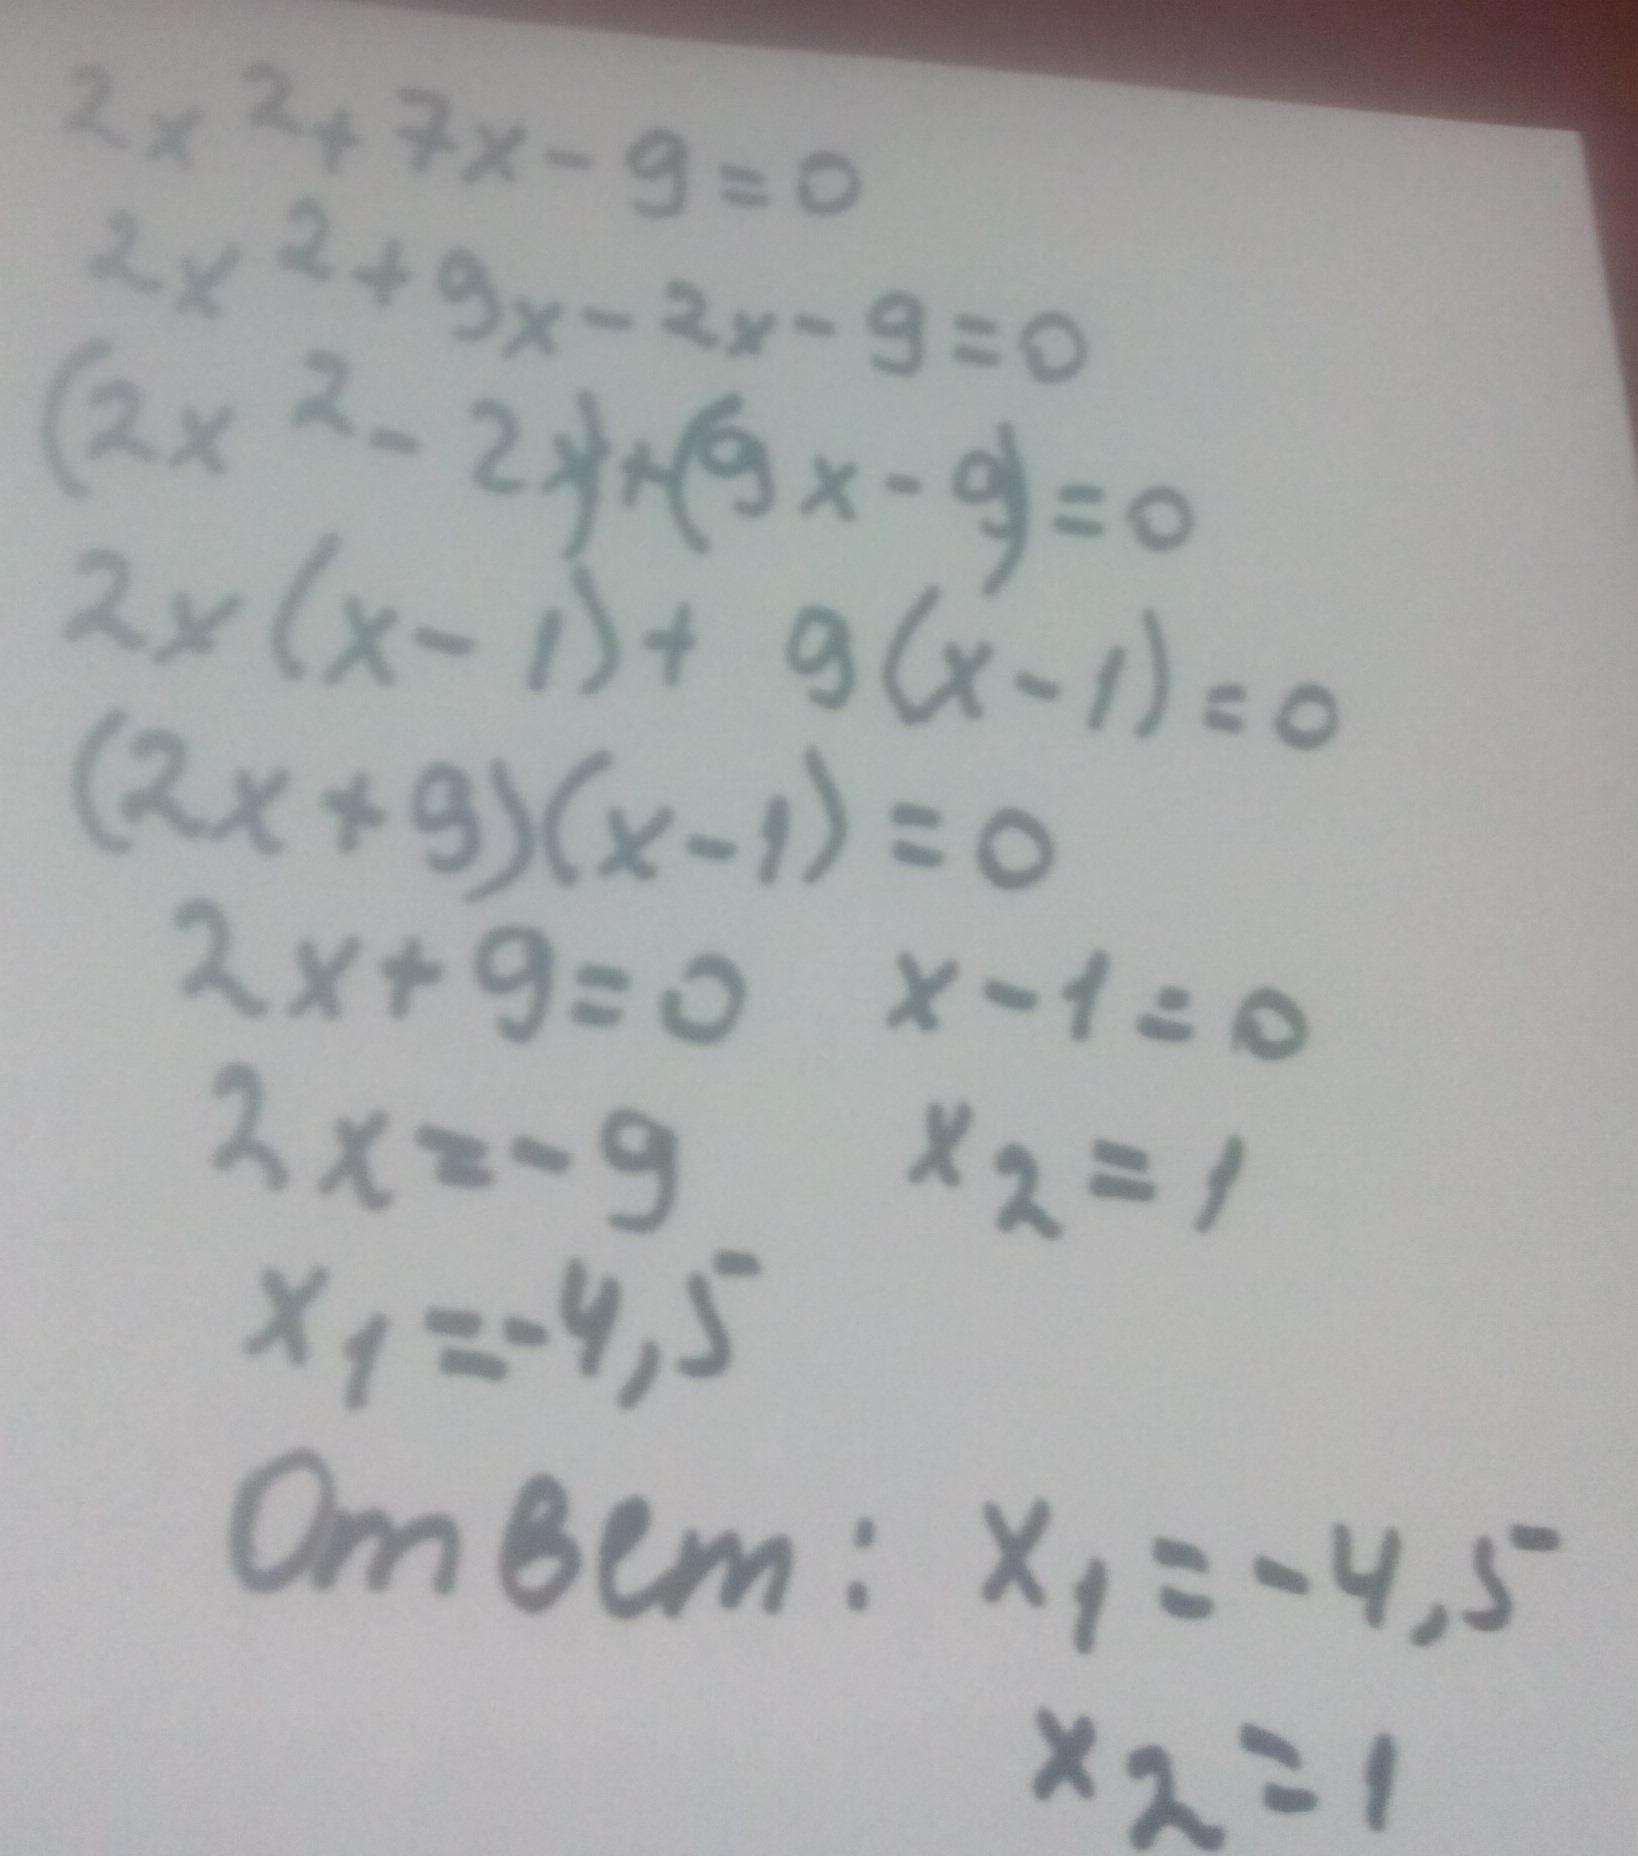 2x² + 7x - 9 = 0
2x² + 9x - 2x - 9 = 0
(2x² - 2x) + (9x - 9) = 0
2x(x - 1) + 9(x - 1) = 0
(2x + 9)(x - 1) = 0
2x + 9 = 0 x - 1 = 0
2x = -9 x₂ = 1
x₁ = -4,5
Ответ: x₁ = -4,5
x₂ = 1